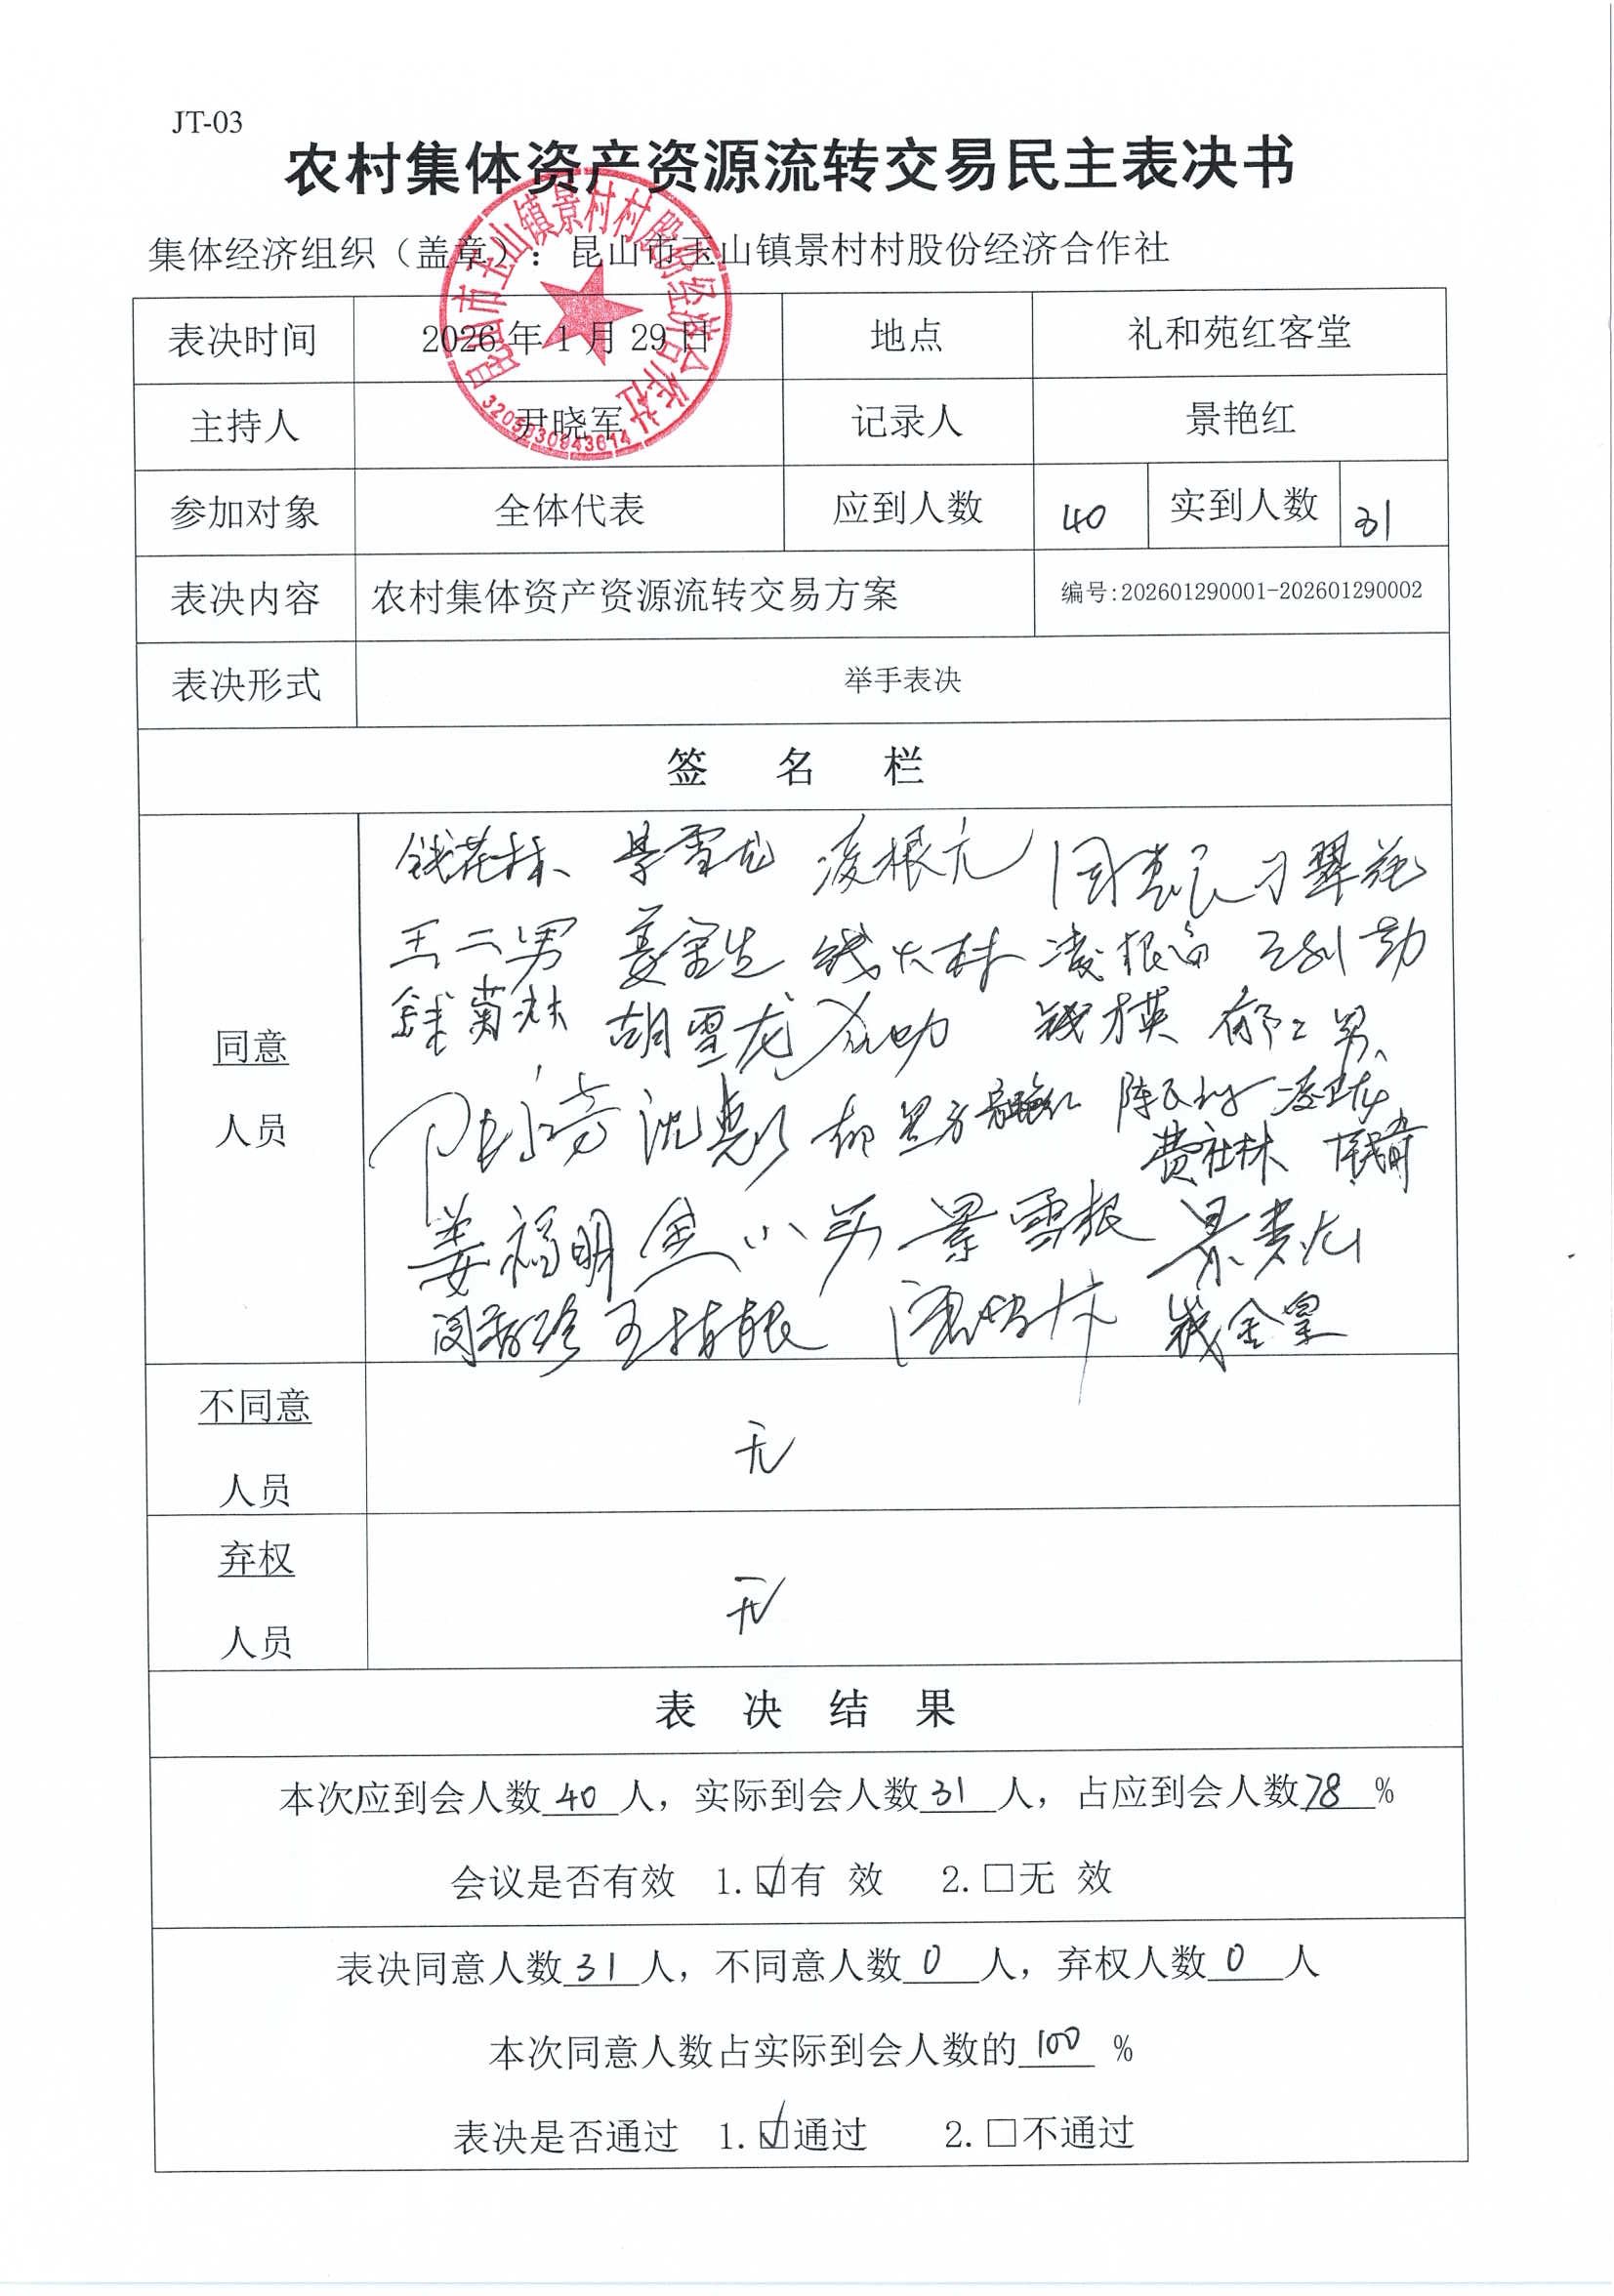 JT-03
农村集体资产资源流转交易民主表决书
集体经济组织（盖章）：昆山市玉山镇景村村股份经济合作社
昆山市玉山镇景村村股份经济合作社
3205830943614
表决时间 2026 年 1 月 29 日 地点 礼和苑红客堂
主持人 尹晓军 记录人 景艳红
参加对象 全体代表 应到人数 40 实到人数 31
表决内容 农村集体资产资源流转交易方案 编号:202601290001-202601290002
表决形式 举手表决
签 名 栏
同意
人员
钱花林、 景雪龙 凌根元
王二男 姜金生 钱火林 凌根
钱菊林 胡雪龙 钱才英 郁二男
沈惠 景艳红 陈
费社林 钱
姜福明 金小男 景雪根 景
王 根 钱金
不同意
人员
无
弃权
人员
无
表 决 结 果
本次应到会人数 40 人，实际到会人数 31 人，占应到会人数 78 %
会议是否有效 1.☑有 效 2.□无 效
表决同意人数 31 人，不同意人数 0 人，弃权人数 0 人
本次同意人数占实际到会人数的 100 %
表决是否通过 1.☑通过 2.□不通过